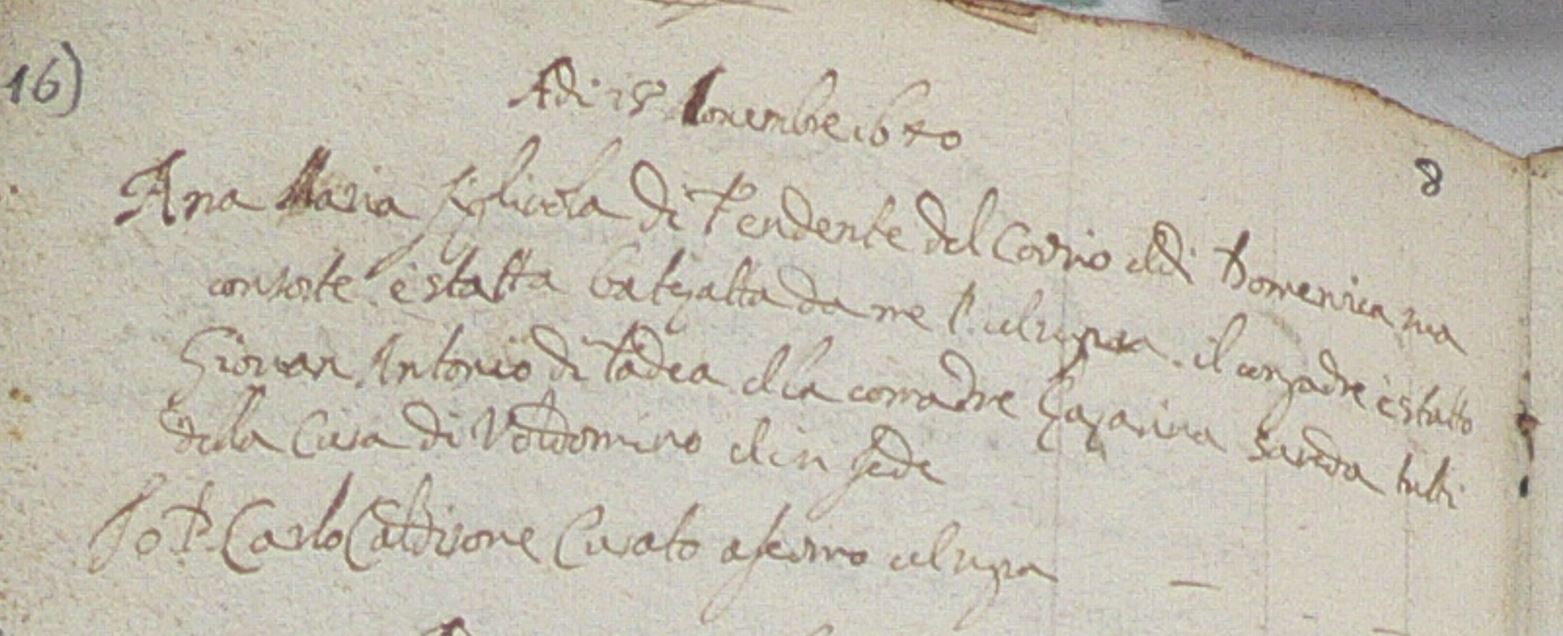 16)
Adi 15 Novembre 1640
8
Anna Maria figliuola di Pendente del Corno et di Domenica sua
consorte è statta batezatta da me P. ut supra. il compadre è statto
Giovan Antonio di Tadea et la comadre Gasarina Sareda tutti
della Cura di Voldomino et in fede
Io P. Carlo Caldirone Curato afermo ut supra